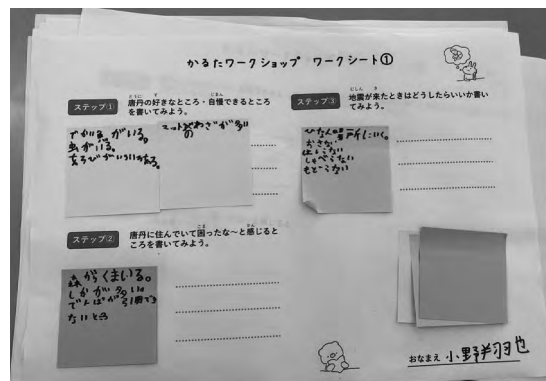 かるたワークショップ ワークシート①
ステップ①
唐丹の好きなところ・自慢できるところ
を書いてみよう。
でかい魚がいる。
虫がいる。
あそびが
わざが多い
の
ステップ②
唐丹に住んでいて困ったな〜と感じると
ころを書いてみよう。
森がらくまいる。
しかが多い。
でんぱが
ないところ
ステップ③
地震が来たときはどうしたらいいか書い
てみよう。
ひなん場所にいく。
おさない
はしらない
しゃべらない
もどらない
おなまえ 小野